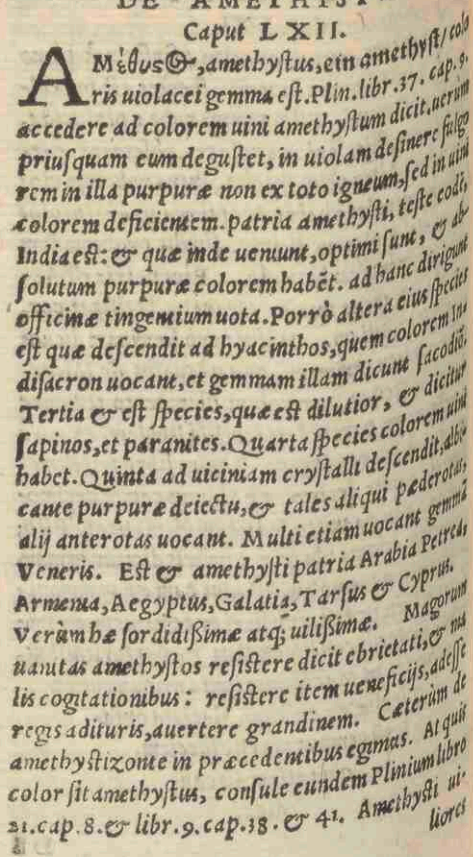 DE AMETHYST
Caput LXII.
AΜέθυσος, amethystus, ein amethyst/ colo
ris uiolacei gemma est. Plin. libr. 37. cap. 9.
accedere ad colorem uini amethystum dicit, uerùm
priusquam eum degustet, in uiolam desinere fulgo
rem in illa purpuræ non ex toto igneum, sed in uini
colorem deficientem. patria amethysti, teste eodē,
India est: & quæ inde ueniunt, optimi sunt, & ab=
solutum purpuræ colorem habēt. ad hanc dirigunt
officinæ tingentium uota. Porrò altera eius species
est quæ descendit ad hyacinthos, quem colorem Ins
disacron uocant, et gemmam illam dicunt sacodiō.
Tertia & est species, quæ est dilutior, & dicitur
sapinos, et paranites. Quarta species colorem uini
habet. Quinta ad uiciniam crystalli descendit, albi=
cante purpuræ deiectu, & tales aliqui pæderotas,
alij anterotas uocant. Multi etiam uocant gemmā
Veneris. Est & amethysti patria Arabia Petreæ,
Armenia, Aegyptus, Galatia, Tarsus & Cyprus.
Verùm hæ sordidißimæ atq; uilißimæ. Magorum
uanitas amethystos resistere dicit ebrietati, & ma
lis cogitationibus: resistere item ueneficijs, adesse
regis adituris, auertere grandinem. Cæterum de
amethystizonte in præcedentibus egimus. At quis
color sit amethystus, consule eundem Plinium libro
21. cap. 8. & libr. 9. cap. 38. & 41. Amethysti ui=
liores